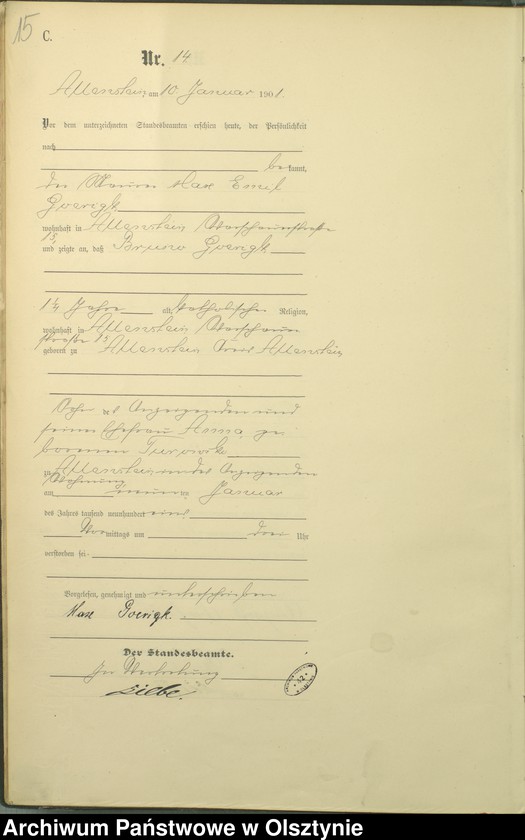 15
C.
Nr. 14
Allenstein, am 10 Januar 1901.
Vor dem unterzeichneten Standesbeamten erschien heute, der Persönlichkeit
nach
bekannt,
der Maurer Max Emil
Goerigk
wohnhaft in Allenstein,
15,
und zeigte an, daß Bruno Goerigk
1¼ Jahre alt, katholischer Religion,
wohnhaft in Allenstein,
straße 15
geboren zu Allenstein, Kreis Allenstein,
Sohn des Anzeigenden und
seiner Ehefrau Anna, ge
borenen
zu Allenstein, in des Anzeigenden
Wohnung
am neunten Januar
des Jahres tausend neunhundert eins
Vormittags um drei Uhr
verstorben sei.
Vorgelesen, genehmigt und unterschrieben
Max Goerigk.
Der Standesbeamte.
In Vertretung
Archiwum Państwowe w Olsztynie